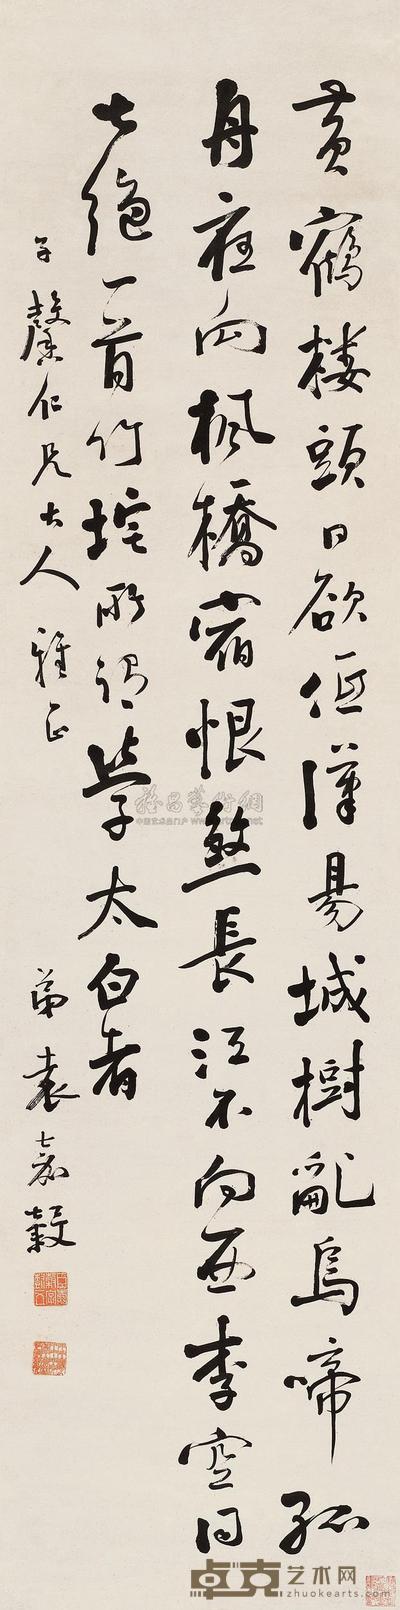 黃鶴樓頭日欲低漢昜城樹亂烏啼孤
舟夜向楓橋宿恨煞長江不向西李空同
七絕一首竹垞所謂學太白者
子馨仁兄大人雅正
弟袁嘉穀
雅昌藝術網
卓克艺术网
zhuokearts.com